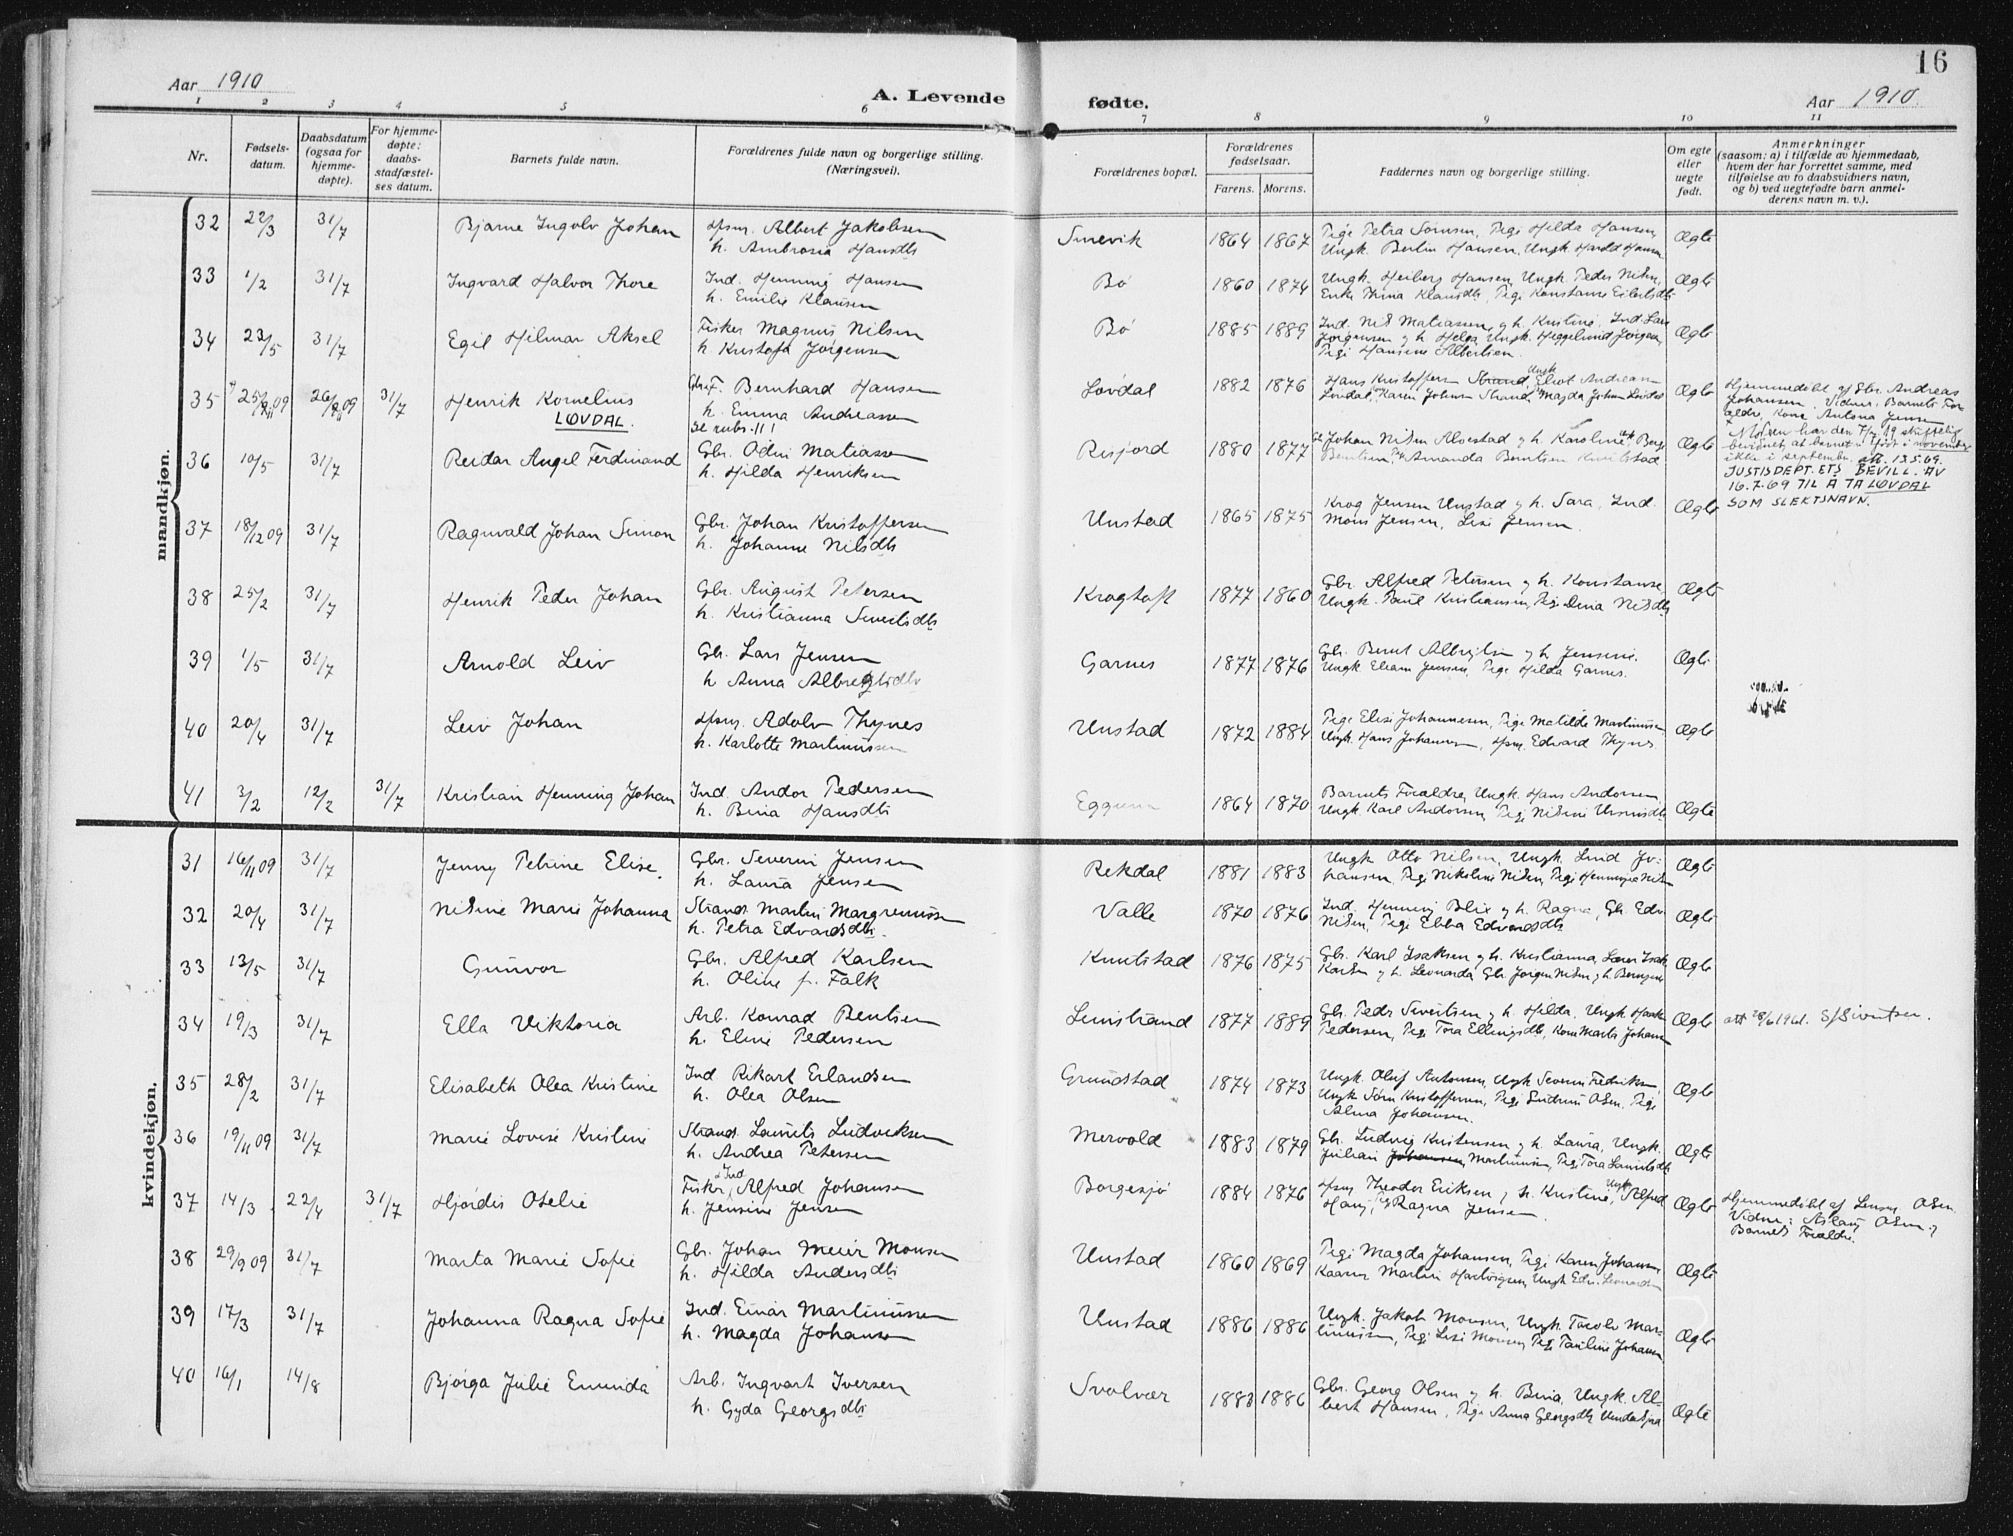 16
Aar 1910
A. Levende fødte.
Aar 1910
1 2 3 4 5 6 7 8 9 10 11
Nr.
Fødsels-
datum.
Daabsdatum
(ogsaa for
hjemme-
døpte).
For hjemme-
døpte:
daabs-
stadfæstel-
ses datum.
Barnets fulde navn.
Forældrenes fulde navn og borgerlige stilling.
(Næringsvei).
Forældrenes bopæl.
Forældrenes
fødselsaar.
Farens. Morens.
Faddernes navn og borgerlige stilling.
Om egte
eller
uegte
født.
Anmerkninger
(saasom: a) i tilfælde av hjemmedaab,
hvem der har forrettet samme, med
tilføielse av to daabsvidners navn,
og b) ved uegtefødte barn anmel-
derens navn m. v.).
mandkjøn.
32 22/3 31/7 Bjarne Ingolv Johan Hsm. Albert Jakobsen Smevik 1864 1867 Pige Petra Pige Hilda Hansen, Ægte
h. Ambrosia Hansdtr Ungk. Berlin Hansen, Ungk. Harald Hansen
33 1/2 31/7 Ingvard Halvor Thore Ind. Henning Hansen Bø 1860 1874 Ungk. Heiberg Hansen, Ungk Peder Nilsen, Ægte
h. Emilie Klausen Enke Klausdtr, Pige Konstanse
34 23/5 31/7 Egil Hilmar Aksel Fisker Magnus Nilsen Bø 1885 1889 Ind. Nils Matiassen og h. Kristine, Ind. Lars Ægte
h. Kristofa Jørgensen Jørgensen og h. Helga, Ungk. Heggelund Jørgensen,
Pige Hansine Albertsen.
35 25/9 09 26/9 09 31/7 Henrik Kornelius Gbr. F. Bernhard Hansen Løvdal 1882 1876 Hans Kristoffersen Strand, Ungk Eliot Andreassen Ægte
LØVDAL. h. Emma Andreassen Løvdal, Karen Johnsen Strand, Magda Johansen Løvdal
Se rubr. 11!
Hjemmedøbt af Gbr. Andreas
Johansen. Vidner: Barnets For-
ældre, Kone Antona Jensen
Moren har den 7/7 19 skriftelig
bevidnet at barnet er født i november
ikke i september. att. 13.5.69.
JUSTISDEPT.ETS BEVILL. AV
16.7.69 TIL Å TA LØVDAL
SOM SLEKTSNAVN.
36 10/5 31/7 Reidar Angel Ferdinand Gbr. Odin Matiassen Risjord 1880 1877 Johan Nilsen Alvestad og h. Karoline, Ungk Berge Ægte
h. Hilda Henriksen Bentsen, Pige Amanda Bentsen Knutstad
37 18/12 09 31/7 Ragnvald Johan Simon Gbr. Johan Kristoffersen Unstad 1865 1875 Krog Jensen Unstad og h. Sara, Ind. Ægte
h. Johanne Nilsdtr Mons Jensen, Lise Jensen.
38 25/2 31/7 Henrik Peder Johan Gbr. August Petersen Krogtoft 1877 1860 Gbr. Alfred Petersen og h. Konstanse, Ægte
h. Kristianna Sivertsdtr Ungk. Paul Kristiansen, Pige Dina Nilsdtr
39 1/5 31/7 Arnold Leiv Gb. Lars Jensen Garnes 1877 1876 Gb. Bernt Albrigtsen og h. Jensine. Ægte
h Anna Albregtsdtr Ungk Eliam Jensen, Pige Hilda Garnes.
40 20/4 31/7 Leiv Johan Hsm. Adolv Thynes Unstad 1872 1884 Pige Elise Johannesen, Pige Matilde Martinussen Ægte
h. Karlotte Martinussen Ungk. Hans Johannesen, Hsm. Edvard Thynes
41 3/2 12/2 31/7 Kristian Henning Johan Ind. Andor Pedersen Eggum 1864 1870 Barnets Forældre, Ungk. Hans Andorsen Ægte
h. Bina Hansdtr Ungk Karl Andorsen, Pige Nilsine
kvindekjøn.
31 16/11 09 31/7 Jenny Petrine Elise. Gbr. Severin Jensen Rekdal 1881 1883 Ungk Otto Nilsen, Ungk. Lind Jo- Ægte
h. Laura Jensen hansen, Pige Nikoline Nilsen, Pige Nilsen
32 20/4 31/7 Nilsine Marie Johanna Strands. Martin Margrenussen Valle 1870 1876 Ind. Henning Blix og h. Ragna, Gb. Edv. Ægte
h. Petra Edvardsdtr. Nilsen, Pige Ebba Edvardsdtr
33 13/5 31/7 Gunvor Gbr. Alfred Karlsen Knutstad 1876 1875 Gb. Karl Isaksen og h. Kristianna, Lærer Isak Ægte
h. Oline f. Falk Karlsen og h. Leonarda, Gb. Jørgen Nilsen og h.
34 19/3 31/7 Ella Viktoria Arb. Konrad Bentsen Leinstrand 1877 1889 Gb. Peder Sivertsen og h. Hilda, Ungk Ægte att 28/6 1961. S/Sivertsen.
h. Eline Pedersen Pedersen, Pige Tora Ellingsdtr, Kone Marta Johansen
35 28/2 31/7 Elisabeth Olea Kristine Ind. Rikart Erlandsen Grundstad 1874 1873 Ungk. Oluf Antonsen, Ungk Severin Fredriksen, Ægte
h. Olea Olsen Ungk Sørn Kristoffersen, Pige Olsen, Pige
Alma Johansen.
36 19/11 09 31/7 Marie Lovise Kristine Strands. Laurits Ludviksen Mervold 1883 1879 Gb. Ludvig Kristensen og h. Laura, Ungk. Ægte
h. Andrea Petersen Julian Johansen, Martinussen, Pige Tora Lauritsdtr
37 14/3 22/4 31/7 Hjørdis Otelie Fisker & Ind. Alfred Johansen Borgesjø 1884 1876 Hsm Theodor Eriksen og h. Kristine, Ungk Alfred Ægte
h. Jensine Jensen Hansen, Pige Ragna Jensen.
Hjemmedøbt af Olsen.
Vidne: Aslaug Olsen og
Barnets Forældre.
38 29/9 09 31/7 Marta Marie Sofie Gb. Johan Meier Monsen Unstad 1860 1869 Pige Magda Johansen, Pige Karen Johansen, Ægte
h. Hilda Andersdtr Kaarer Martin Hartvigsen, Ungk Edv. Leonardsen
39 17/3 31/7 Johanna Ragna Sofie Ind. Einar Martinussen Unstad 1886 1886 Ungk. Jakob Monsen, Ungk. Torolv Mar- Ægte
h. Magda Johansen tinussen, Pige Lise Monsen, Pige Pauline Johansen
40 16/1 14/8 Bjørga Julie Eminda Arb. Ingvart Iversen Svolvær 1883 1886 Gbr. Georg Olsen og h. Bina, Ungk. Al- Ægte
h. Gyda Georgsdtr bert Hansen, Pige Anna Georgsdtr